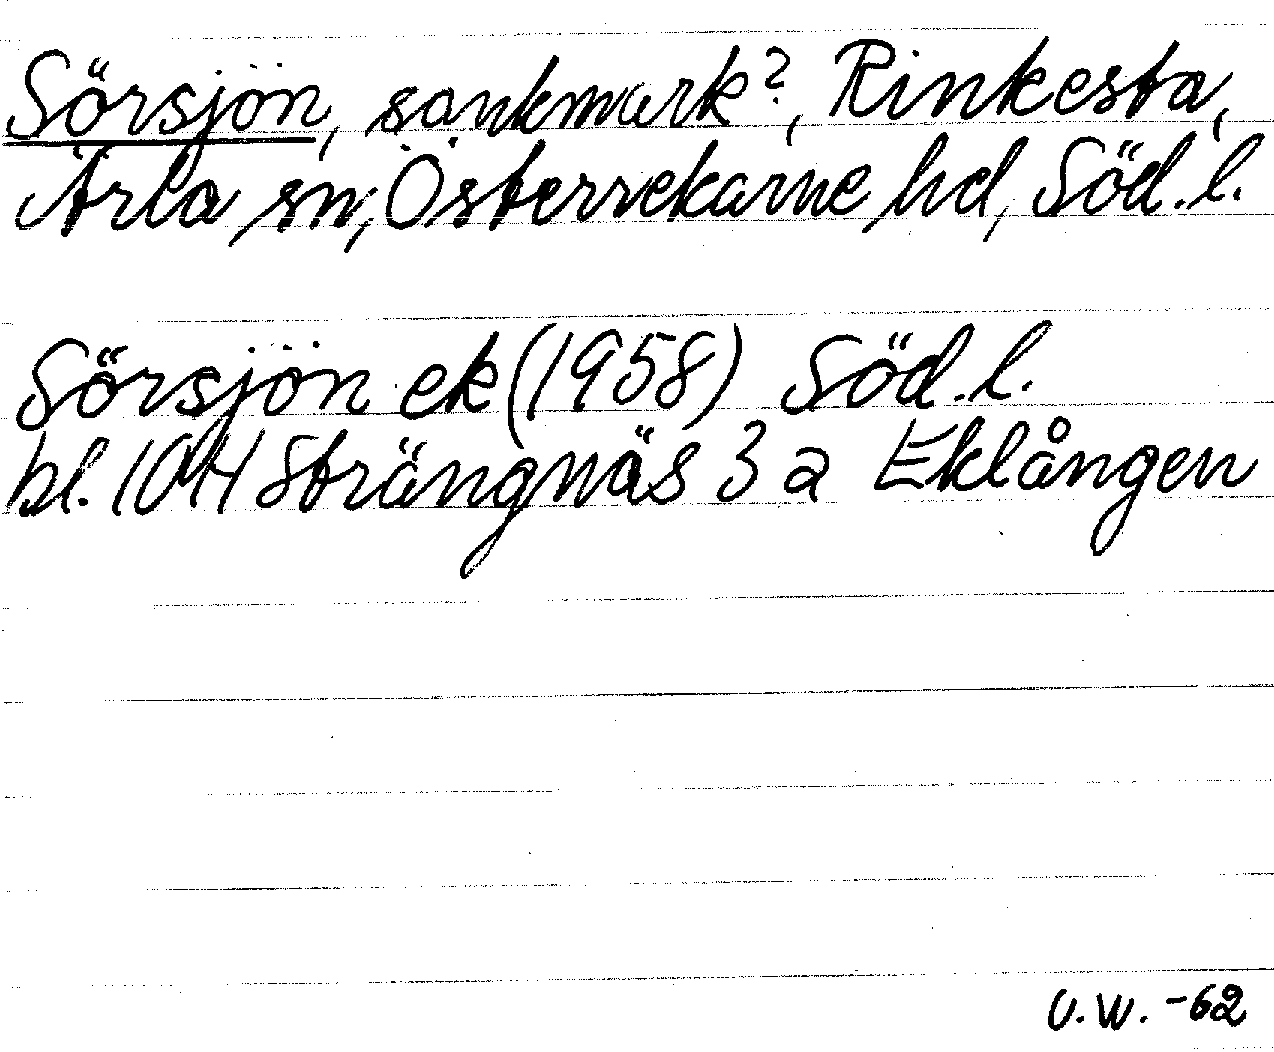 Sörsjön, sankmark?, Rinkesta,
Ärla sn, Österrekarne hd, Söd.l.
Sörsjön ek (1958) Söd.l.
bl. 104 Strängnäs 3 a Eklången
U.W. -62